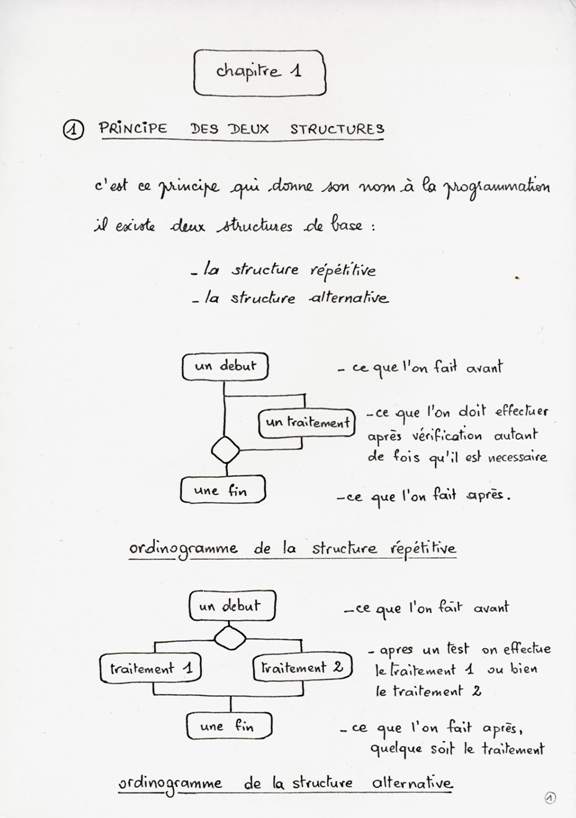 chapitre 1
1 PRINCIPE DES DEUX STRUCTURES
c'est ce principe qui donne son nom à la programmation
il existe deux structures de base :
- la structure répétitive
- la structure alternative
un debut
- ce que l'on fait avant
un traitement
- ce que l'on doit effectuer
après vérification autant
de fois qu'il est necessaire
une fin
- ce que l'on fait après.
ordinogramme de la structure répétitive
un debut
- ce que l'on fait avant
traitement 1
traitement 2
- apres un test on effectue
le traitement 1 ou bien
le traitement 2
une fin
- ce que l'on fait après,
quelque soit le traitement
ordinogramme de la structure alternative
1